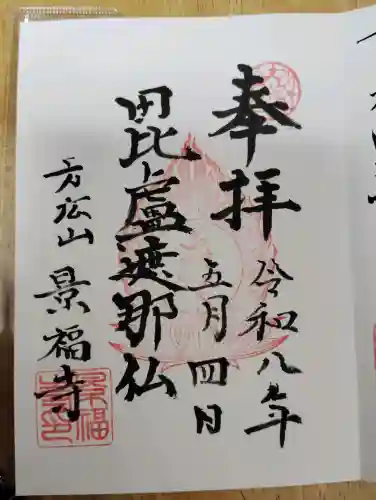 奉拝
令和八年
五月四日
毘盧遮那仏
方松山 景福寺
景福寺印